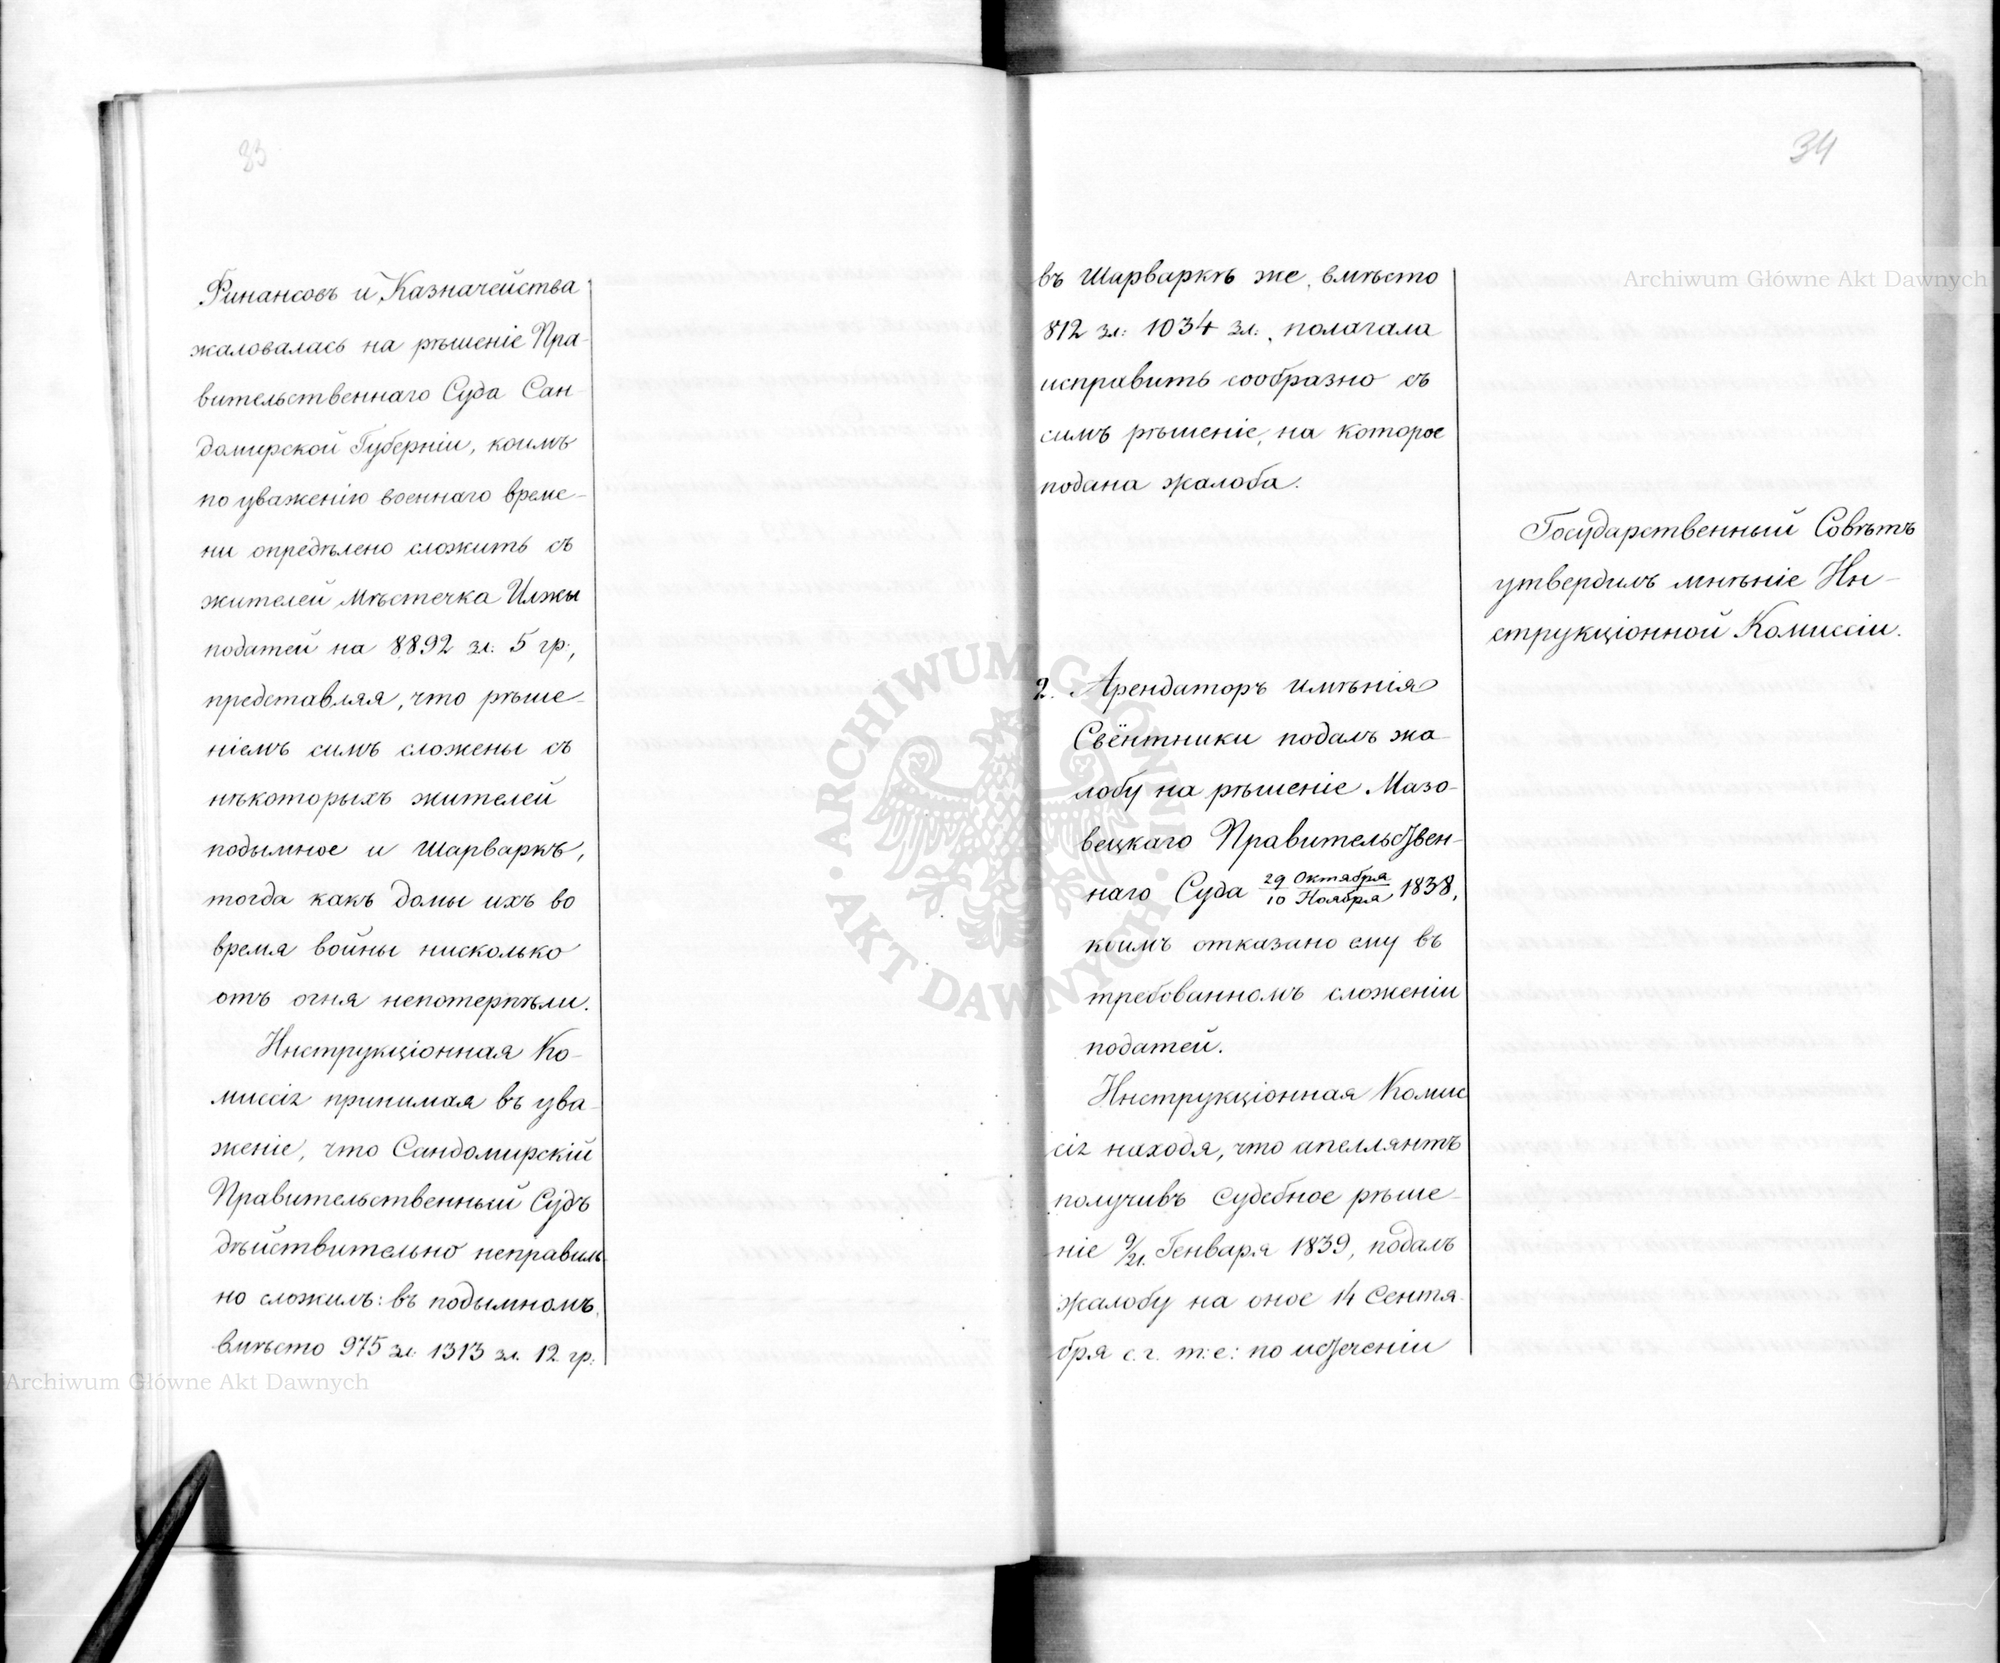 33
Финансовъ и Казначейства
жаловалась на рѣшеніе Пра-
вительственнаго Суда Сан-
домирской Губерніи, коимъ
по уваженію военнаго време-
ни опредѣлено сложить съ
жителей мѣстечка Илжы
податей на 8892 зл: 5 гр:,
представляя, что рѣше-
ніемъ симъ сложены съ
нѣкоторыхъ жителей
подымное и Шарваркъ,
тогда какъ домы ихъ во
время войны нисколько
отъ огня непотерпѣли.
Инструкціонная Ко-
миссія принимая въ ува-
женіе, что Сандомирскій
Правительственный Судъ
дѣйствительно неправиль-
но сложилъ: въ подымномъ,
вмѣсто 975 зл: 1313 зл. 12 гр:
34
въ Шарваркѣ же, вмѣсто
812 зл: 1034 зл:, полагала
исправить сообразно съ
симъ рѣшеніе, на которое
подана жалоба.
Государственный Совѣтъ
утвердилъ мнѣніе Ин-
струкціонной Комиссіи.
2. Арендаторъ имѣнія
Свёнтники подалъ жа-
лобу на рѣшеніе Мазо-
вецкаго Правительствен-
наго Суда 29 Октября/10 Ноября 1838,
коимъ отказано ему въ
требованномъ сложеніи
податей.
Инструкціонная Комис
сія находя, что апеллянтъ
получивъ судебное рѣше-
ніе 9/21. Генваря 1839, подалъ
жалобу на оное 14 Сентя-
бря с. г. т: е: по истеченіи
Archiwum Główne Akt Dawnych
ARCHIWUM GŁÓWNE · AKT DAWNYCH ·
Archiwum Główne Akt Dawnych